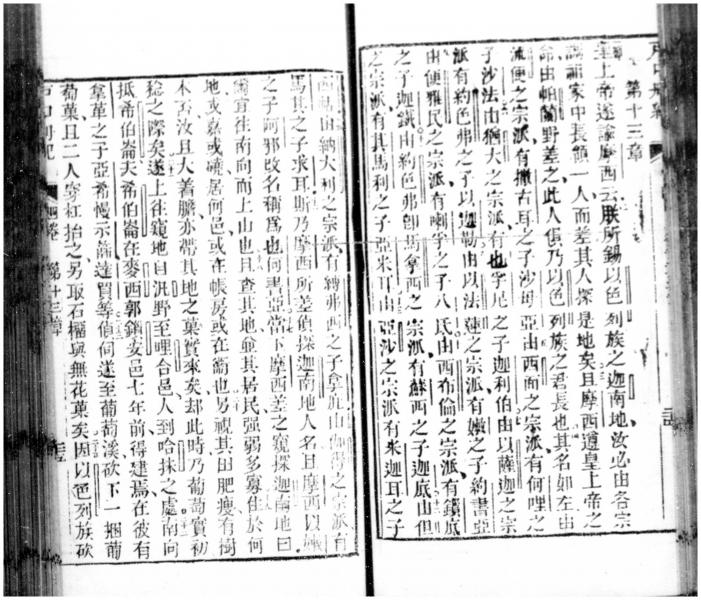 第十三章
皇上帝遂諭摩西云朕所錫以色列族之迦南地汝必由各宗
派祖家中長領一人而差其人探是地矣且摩西遵皇上帝之
命由帕蘭野差之此人俱乃以色列族之君長也其名如左由
流便之宗派有撒古耳之子沙母亞由西面之宗派有何哩之
子沙法由猶大之宗派有也孚尼之子迦利伯由以薩迦之宗
派有約色弗之子以迦勒由以法蓮之宗派有嫩之子約書亞
由便雅民之宗派有喇孚之子八氏由西布倫之宗派有鎖底
之子迦鐵由約色弗卽馬拿西之宗派有蘇西之子迦底由但
之宗派有其馬利之子亞米耳由亞沙之宗派有米迦耳之子
西帖由納大利之宗派有縛弗西之子拿庇由伽得之宗派有
馬其之子求耳斯乃摩西所差偵探迦南地人名且摩西以嫩
之子阿邪改名稱爲也何書亞當下摩西差之窺探迦南地曰
爾宜往南向而上山也且查其地並其居民强弱多寡住於何
地或嘉或磽居何邑或在帳房或在衞也另視其田肥瘦有樹
木否汝且大着膽亦帶其地之菓實來矣却此時乃葡萄實初
稔之際矣遂上往窺地自汛野至哩合邑人到哈抹之處南向
抵希伯崙夫希伯崙在麥西郭鎖安邑七年前得建焉在彼有
拿革之子亞希慢示篩達買等偵伺遂至葡萄溪砍下一捆葡
萄菓且二人穿杠抬之另取石榴與無花菓矣因以色列族砍
戶口冊紀 四卷 第十三章